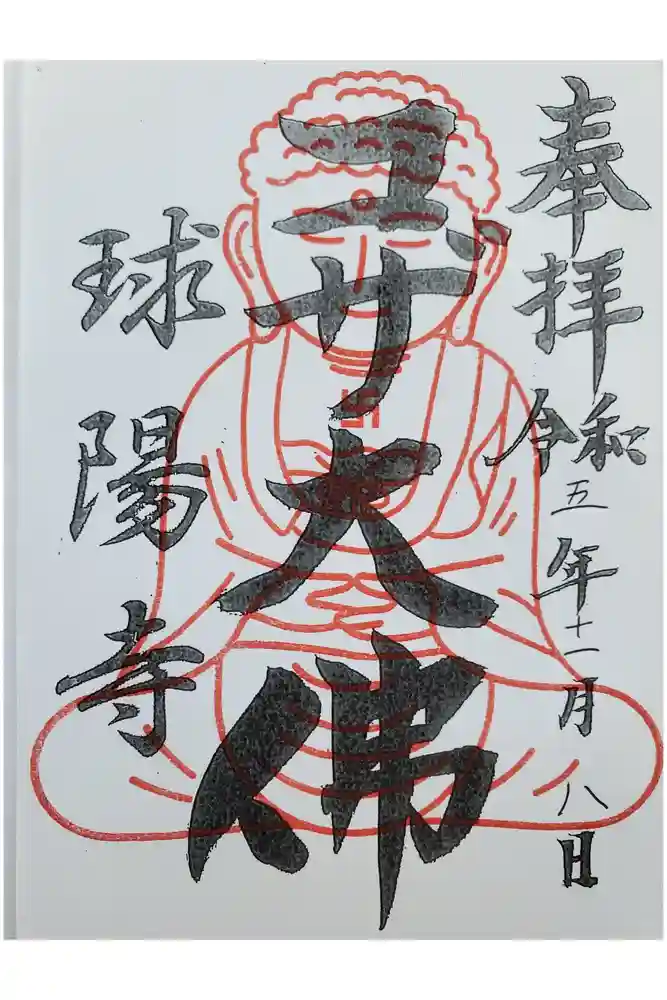 奉拝
令和五年十一月八日
コザ大佛
球陽寺